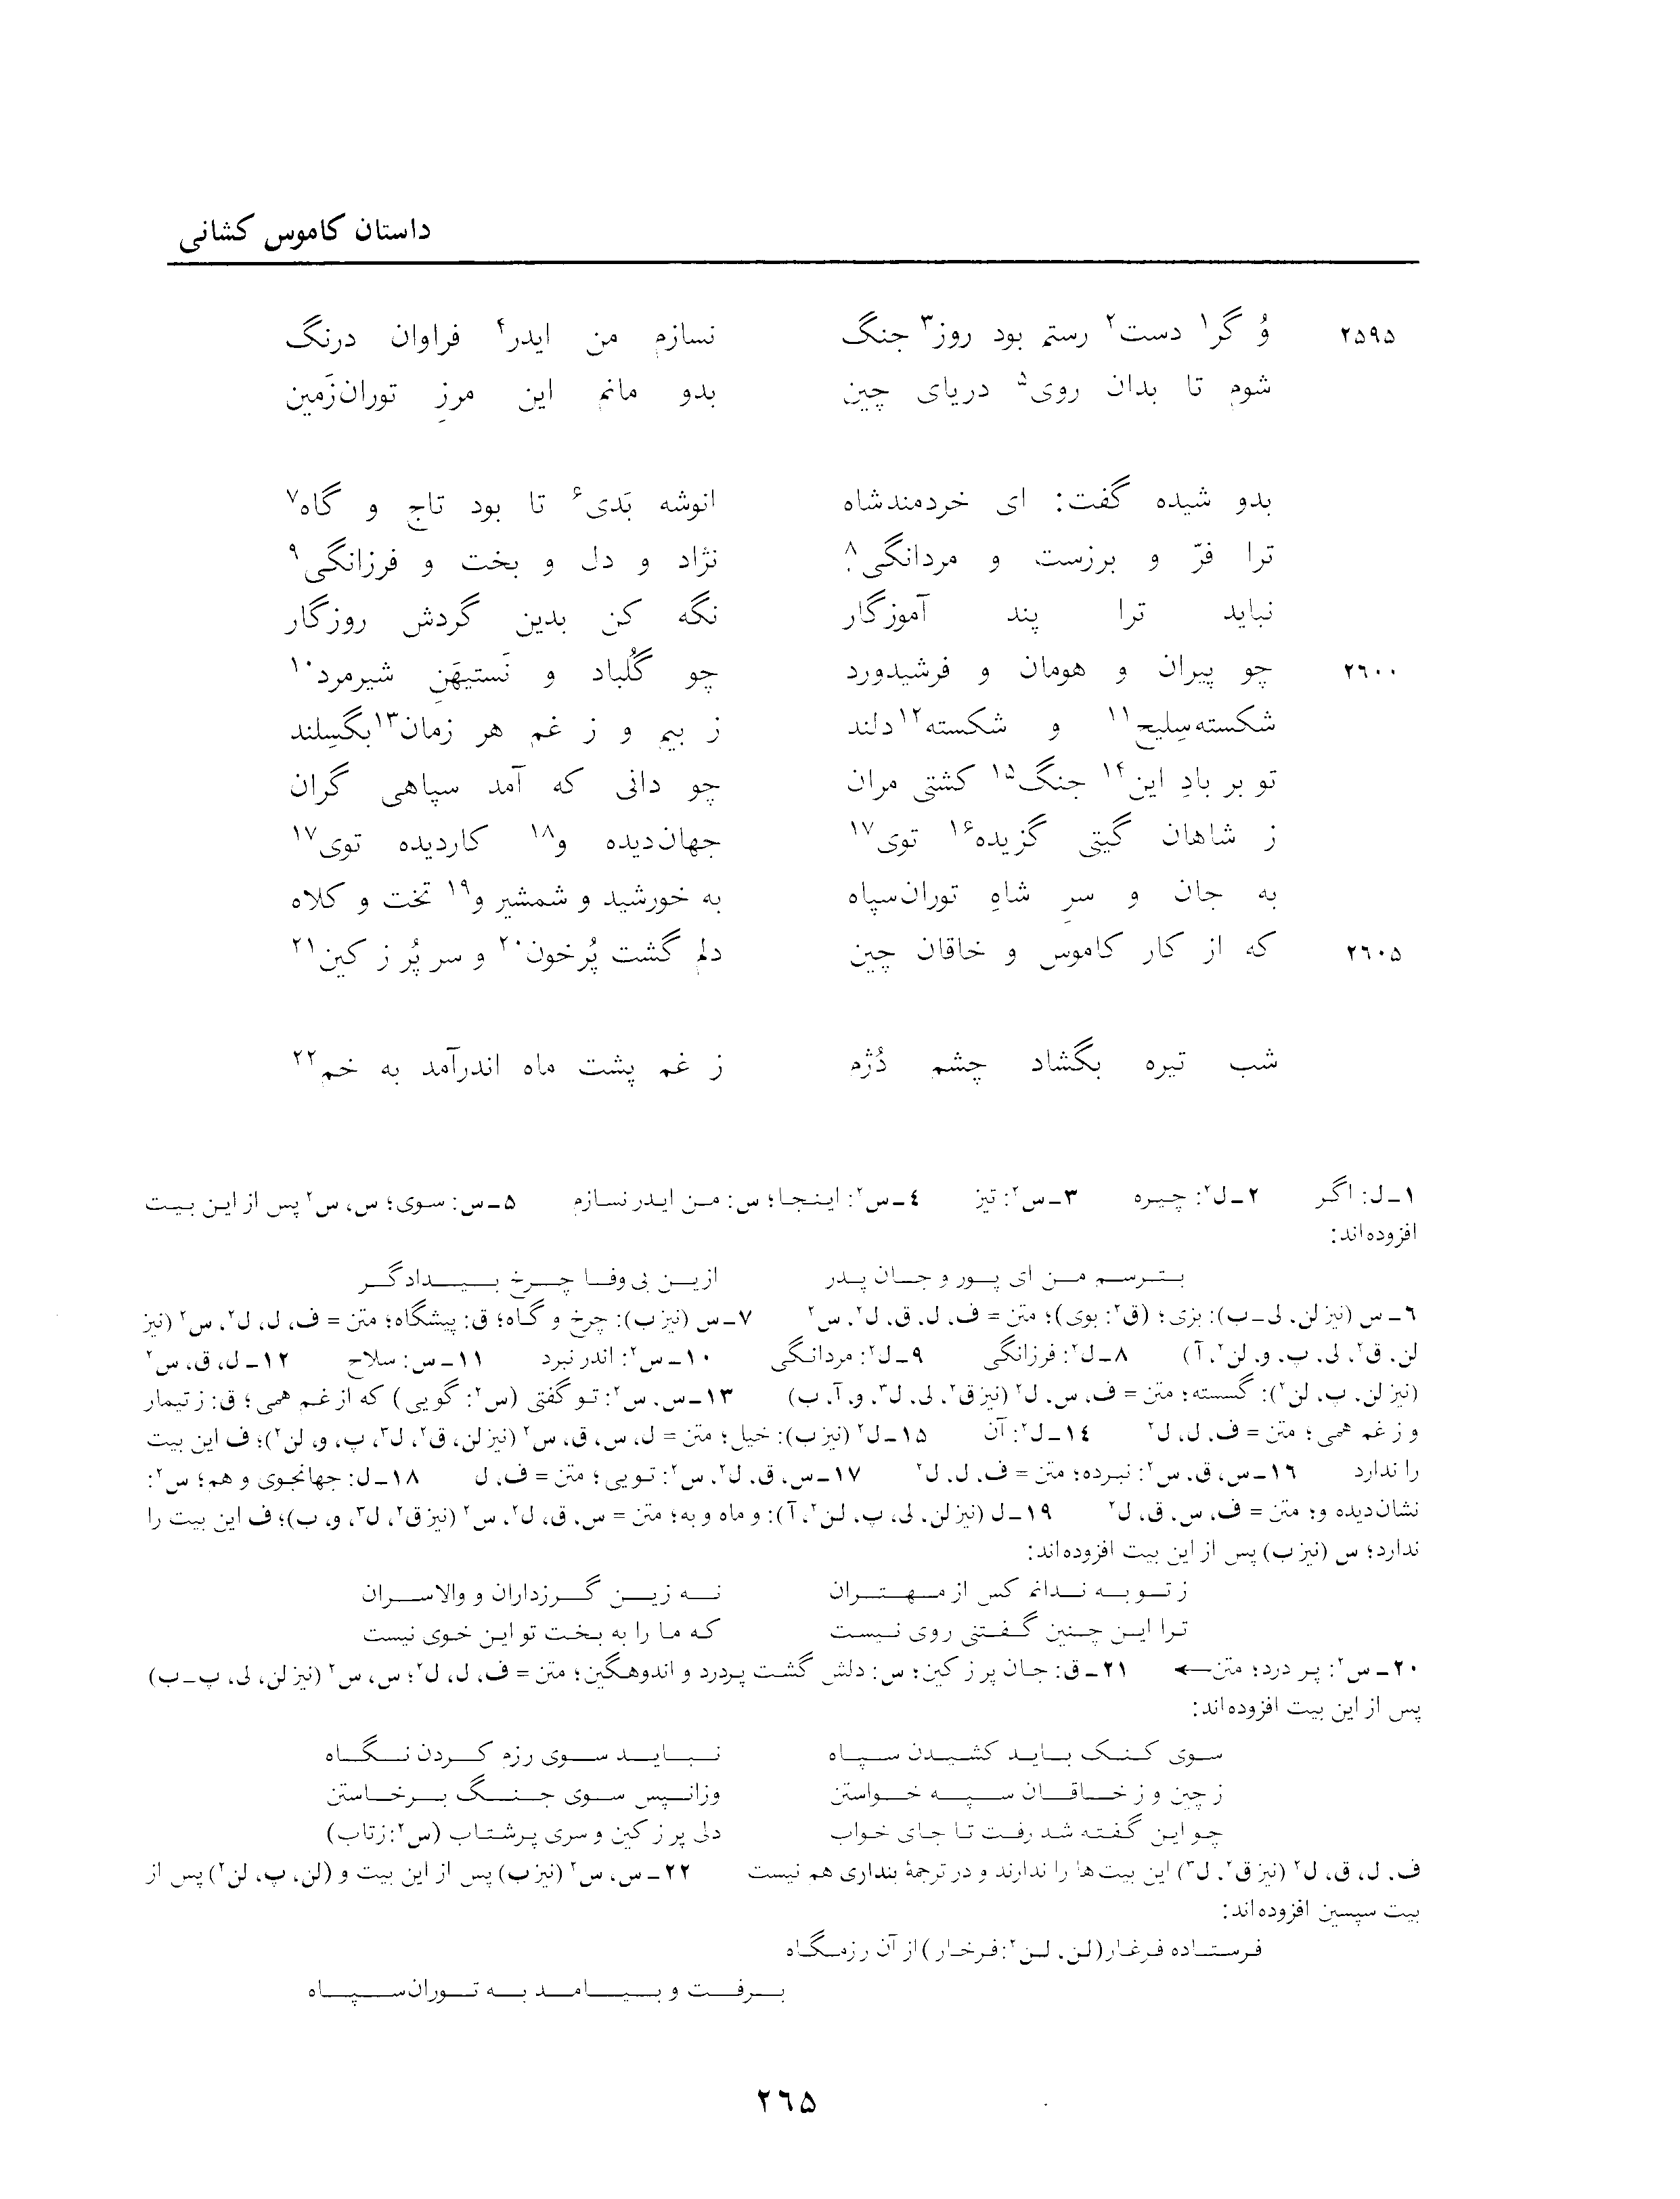 داستان کاموس کشانی
۲۵۹۵ وُ گر۱ دست۲ رستم بود روز۳ جنگ نسازم من ایدر۴ فراوان درنگ
شوم تا بدان روی۵ دریای چین بدو مانم این مرزِ توران‌زَمین
بدو شیده گفت: ای خردمندشاه انوشه بَدی۶ تا بود تاج و گاه۷
ترا فرّ و برزست و مردانگی۸: نژاد و دل و بخت و فرزانگی۹
نباید ترا پند آموزگار نگه کن بدین گردش روزگار
۲۶۰۰ چو پیران و هومان و فرشیدورد چو گُلباد و نَستیهَنِ شیرمرد۱۰
شکسته‌سِلیح۱۱ و شکسته۱۲ دلند ز بیم و ز غم هر زمان۱۳ بگسِلند
تو بر بادِ این۱۴ جنگ۱۵ کشتی مران چو دانی که آمد سپاهی گران
ز شاهان گیتی گزیده۱۶ توی۱۷ جهان‌دیده و۱۸ کاردیده توی۱۷
به جان و سرِ شاهِ توران‌سپاه به خورشید و شمشیر و۱۹ تخت و کلاه
۲۶۰۵ که از کار کاموس و خاقان چین دلم گشت پُرخون۲۰ و سر پُر ز کین۲۱
شب تیره بگشاد چشم دُژم ز غم پشت ماه اندرآمد به خم۲۲
۱ـ ل: اگر ۲ـ ل۲: چیره ۳ـ س۲: تیز ۴ـ س۲: اینجا؛ س: من ایدر نسازم ۵ـ س: سوی؛ س، س۲ پس از این بیت
افزوده‌اند:
بترسم من ای پور و جان پدر ازین بی‌وفا چرخ بیدادگر
۶ـ س (نیز لن، لی-ب): بزی؛ (ق۲: بوی)؛ متن = ف، ل، ق، ل۲، س۲ ۷ـ س (نیز ب): چرخ و گاه؛ ق: پیشگاه؛ متن = ف، ل، ل۲، س۲ (نیز
لن، ق۲، لی، پ، و، لن۲، آ) ۸ـ ل۲: فرزانگی ۹ـ ل۲: مردانگی ۱۰ـ س۲: اندر نبرد ۱۱ـ س: سلاح ۱۲ـ ل، ق، س۲
(نیز لن، پ، لن۲): گسسته؛ متن = ف، س، ل۲ (نیز ق۲، لی، ل۳، و، آ، ب) ۱۳ـ س، س۲: تو گفتی (س۲: گویی) که از غم همی؛ ق: ز تیمار
و ز غم همی؛ متن = ف، ل، ل۲ ۱۴ـ ل۲: آن ۱۵ـ ل۲ (نیز ب): خیل؛ متن = ل، س، ق، س۲ (نیز لن، ق۲، ل۳، پ، و، لن۲)؛ ف این بیت
را ندارد ۱۶ـ س، ق، س۲: نبرده؛ متن = ف، ل، ل۲ ۱۷ـ س، ق، ل۲، س۲: تویی؛ متن = ف، ل ۱۸ـ ل: جهانجوی و هم؛ س۲:
نشان‌دیده و؛ متن = ف، س، ق، ل۲ ۱۹ـ ل (نیز لن، لی، پ، لن۲، آ): و ماه و به؛ متن = س، ق، ل۲، س۲ (نیز ق۲، ل۳، و، ب)؛ ف این بیت را
ندارد؛ س (نیز ب) پس از این بیت افزوده‌اند:
ز تو به ندانم کس از مهتران نه زین گرزداران و والاسران
ترا این چنین گفتنی روی نیست که ما را به بخت تو این خوی نیست
۲۰ـ س۲: پر درد؛ متن← ۲۱ـ ق: جان پر ز کین؛ س: دلش گشت پردرد و اندوهگین؛ متن = ف، ل، ل۲؛ س، س۲ (نیز لن، لی، پ-ب)
پس از این بیت افزوده‌اند:
سوی کنک باید کشیدن سپاه نباید سوی رزم کردن نگاه
ز چین و ز خاقان سپه خواستن وزانپس سوی جنگ برخاستن
چو این گفته شد رفت تا جای خواب دلی پر ز کین و سری پرشتاب (س۲: ز تاب)
ف، ل، ق، ل۲ (نیز ق۲، ل۳) این بیت‌ها را ندارند و در ترجمهٔ بنداری هم نیست ۲۲ـ س، س۲ (نیز ب) پس از این بیت و (لن، پ، لن۲) پس از
بیت سپسین افزوده‌اند:
فرستاده فرغار (لن، لن۲: فرخار) از آن رزمگاه
برفت و بیامد به توران‌سپاه
۲۶۵